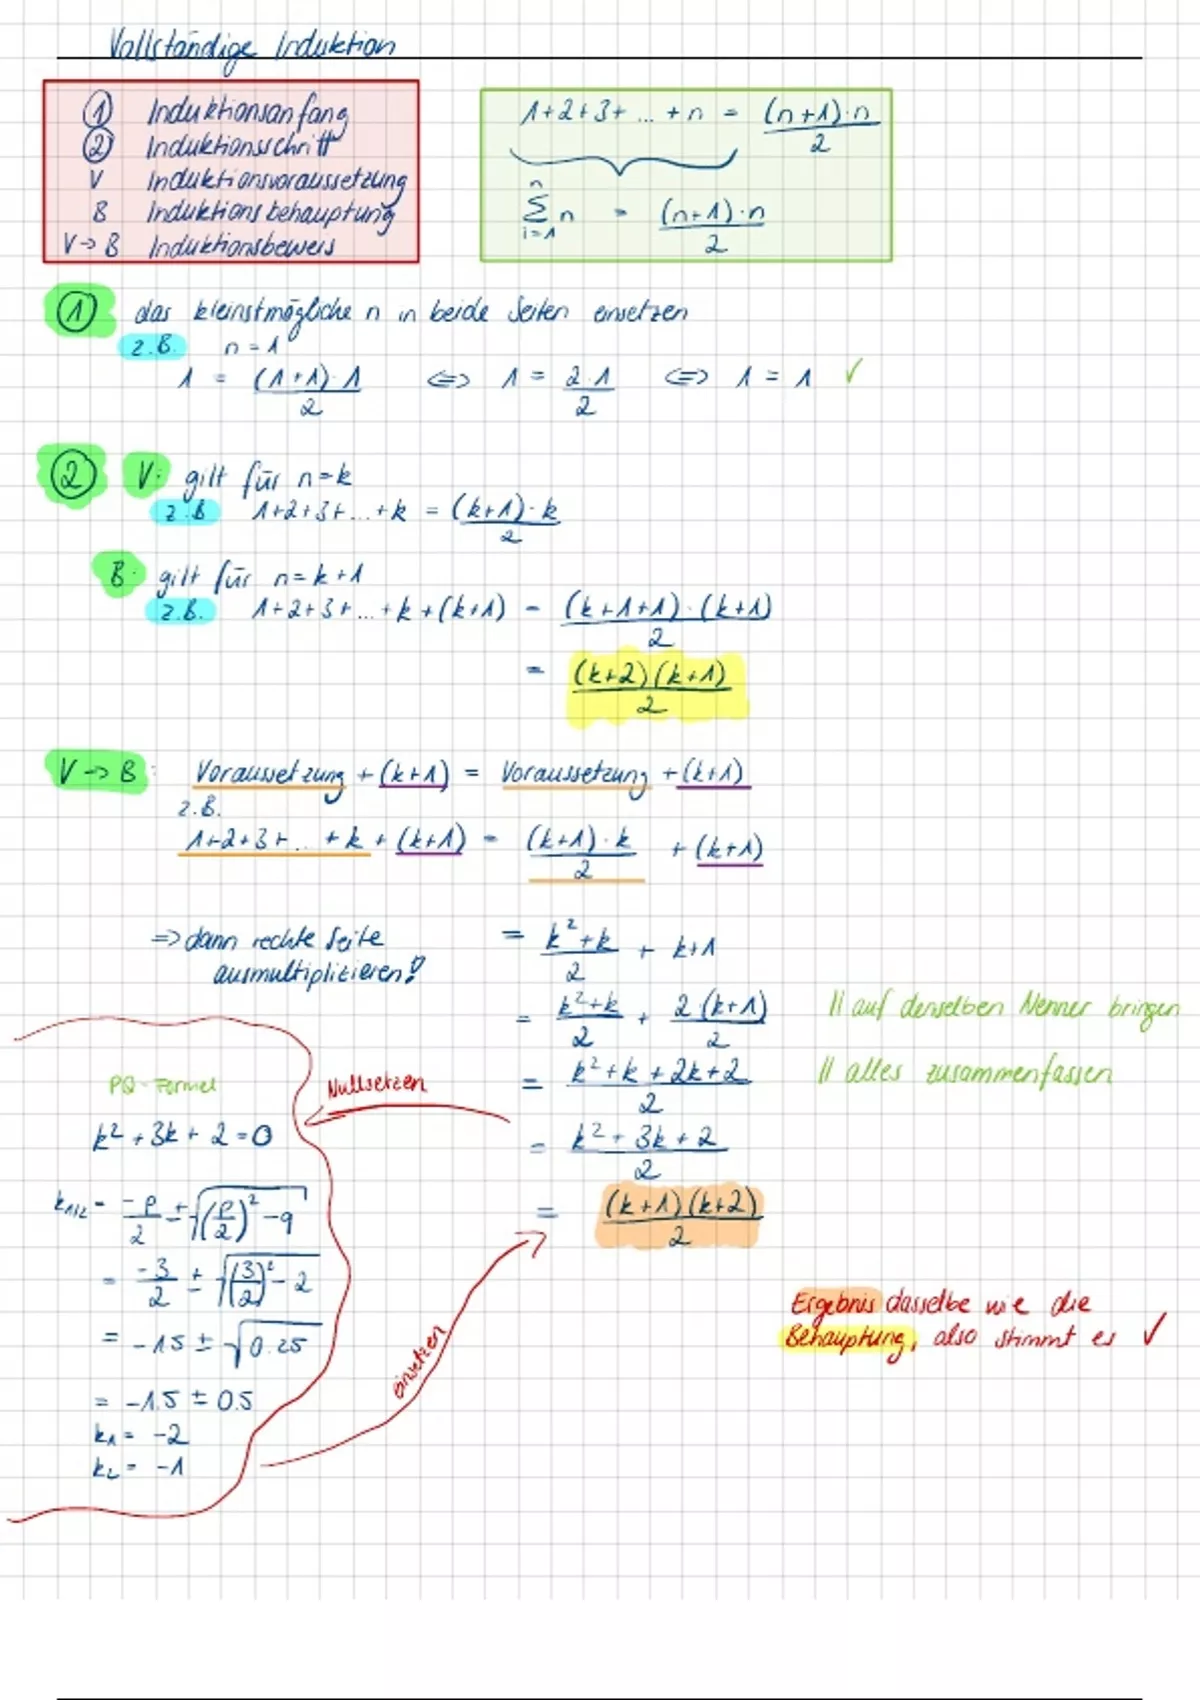 Vollständige Induktion
① Induktionsanfang
② Induktionsschritt
V Induktionsvoraussetzung
B Induktionsbehauptung
V → B Induktionsbeweis
1+2+3+ ... + n = (n+1)·n / 2
n∑i=1 n = (n+1)·n / 2
① das kleinstmögliche n in beide Seiten einsetzen
z.B. n = 1
1 = (1+1)·1 / 2 ⇔ 1 = 2·1 / 2 ⇔ 1 = 1 ✓
② V: gilt für n=k
z.B 1+2+3+...+k = (k+1)·k / 2
B: gilt für n=k+1
z.B. 1+2+3+...+k+(k+1) = (k+1+1)·(k+1) / 2
= (k+2)(k+1) / 2
V → B: Voraussetzung +(k+1) = Voraussetzung +(k+1)
z.B.
1+2+3+...+k+(k+1) = (k+1)·k / 2 + (k+1)
⇒ dann rechte Seite
ausmultiplizieren!
= k²+k / 2 + k+1
= k²+k / 2 + 2(k+1) / 2 // auf denselben Nenner bringen
= k²+k+2k+2 / 2 // alles zusammenfassen
= k²+3k+2 / 2
= (k+1)(k+2) / 2
Nullsetzen
PQ-Formel
k²+3k+2=0
k1/2 = -p/2 ± √((p/2)² - q)
= -3/2 ± √((3/2)² - 2)
= -1.5 ± √0.25
= -1.5 ± 0.5
k1 = -2
k2 = -1
einsetzen
Ergebnis dasselbe wie die
Behauptung, also stimmt es ✓